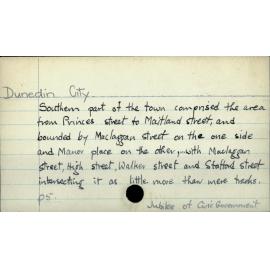 Dunedin City
Southern part of the town comprised the area
from Princes street to Maitland street, and
bounded by Maclaggan street on the one side
and Manor place on the other, with Maclaggan
street, High street, Walker street and Stafford street
intersecting it as little more than mere tracks.
p5.
Jubilee of Civic Government